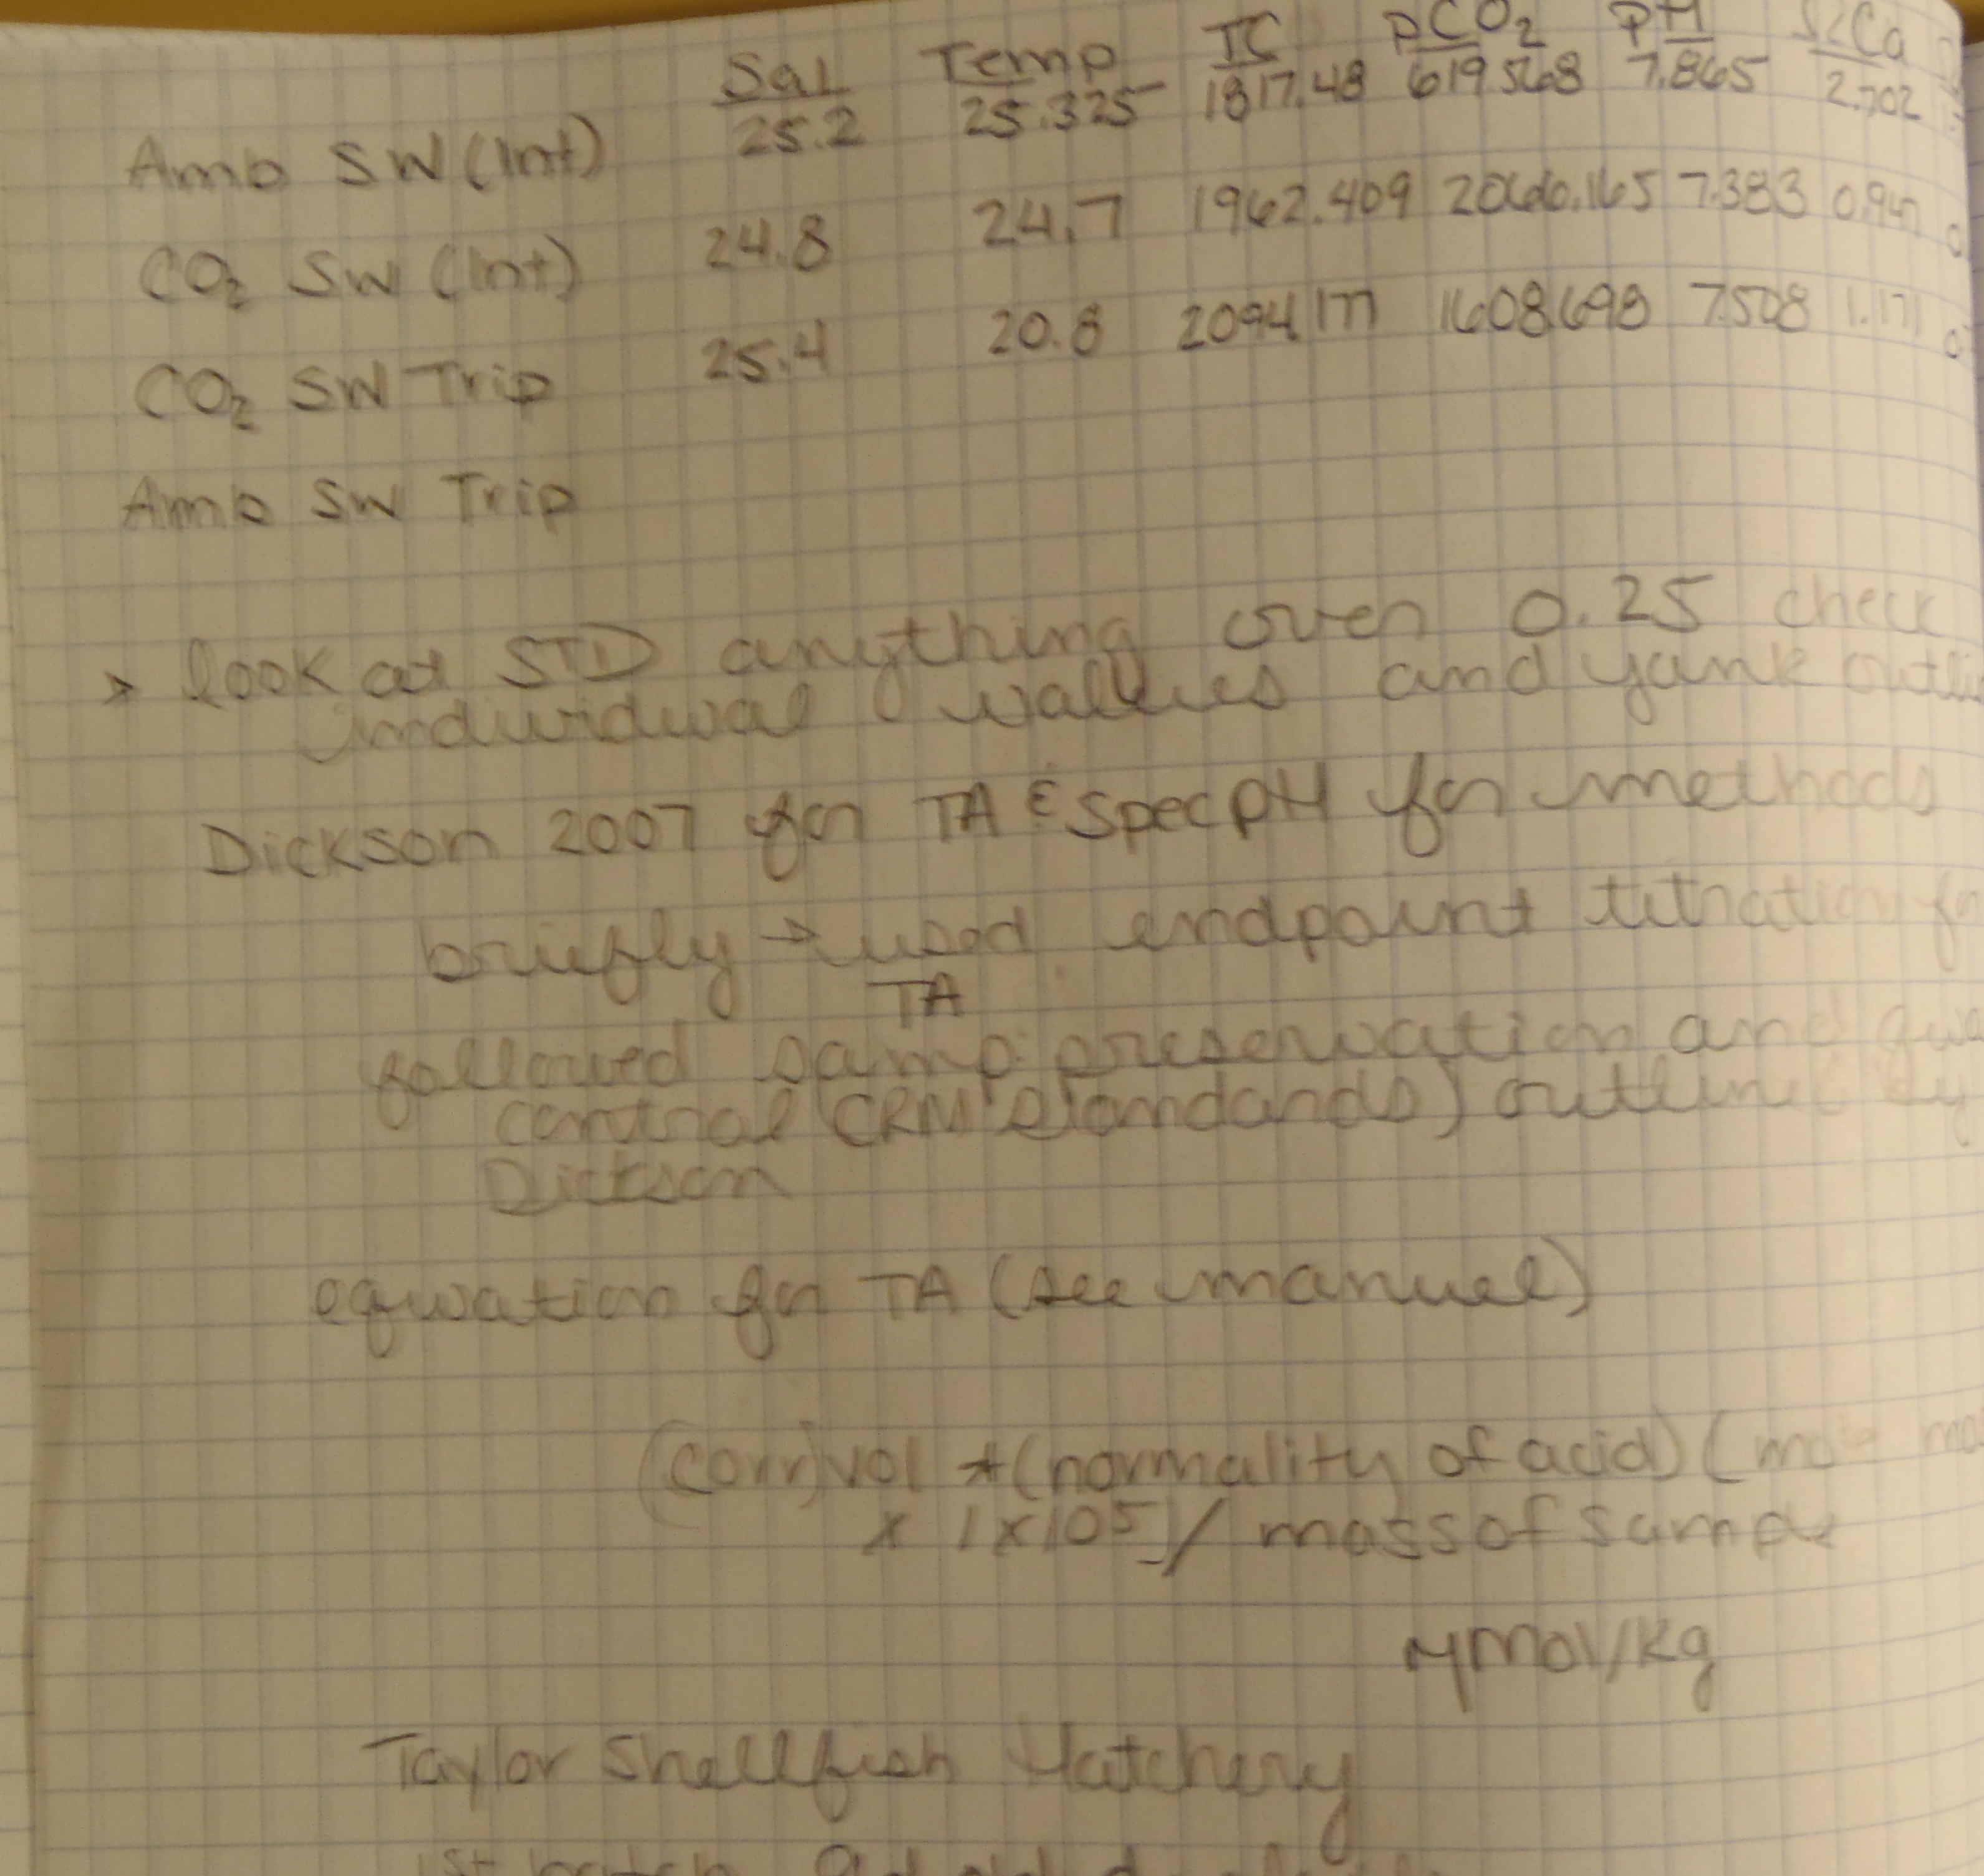 Sal Temp TC pCO2 pH ΩCa
Amb SW (Int) 25.2 25.325 1817.48 619.568 7.865 2.702
CO2 SW (Int) 24.8 24.7 1962.409 2066.165 7.383 0.947
CO2 SW Trip 25.4 20.8 2094.177 1608.698 7.508 1.171
Amb SW Trip
> look at STD anything over 0.25 check
individual values and yank
Dickson 2007 for TA & Spec pH for methods
briefly → used endpoint titration for
TA
followed samp preservation and
control (CRM standards) outlined by
Dickson
equation for TA (see manuel)
(corr) vol * (normality of acid) (
x 1x10^5 / mass of sample
μmol/kg
Taylor Shellfish Hatchery
1st batch